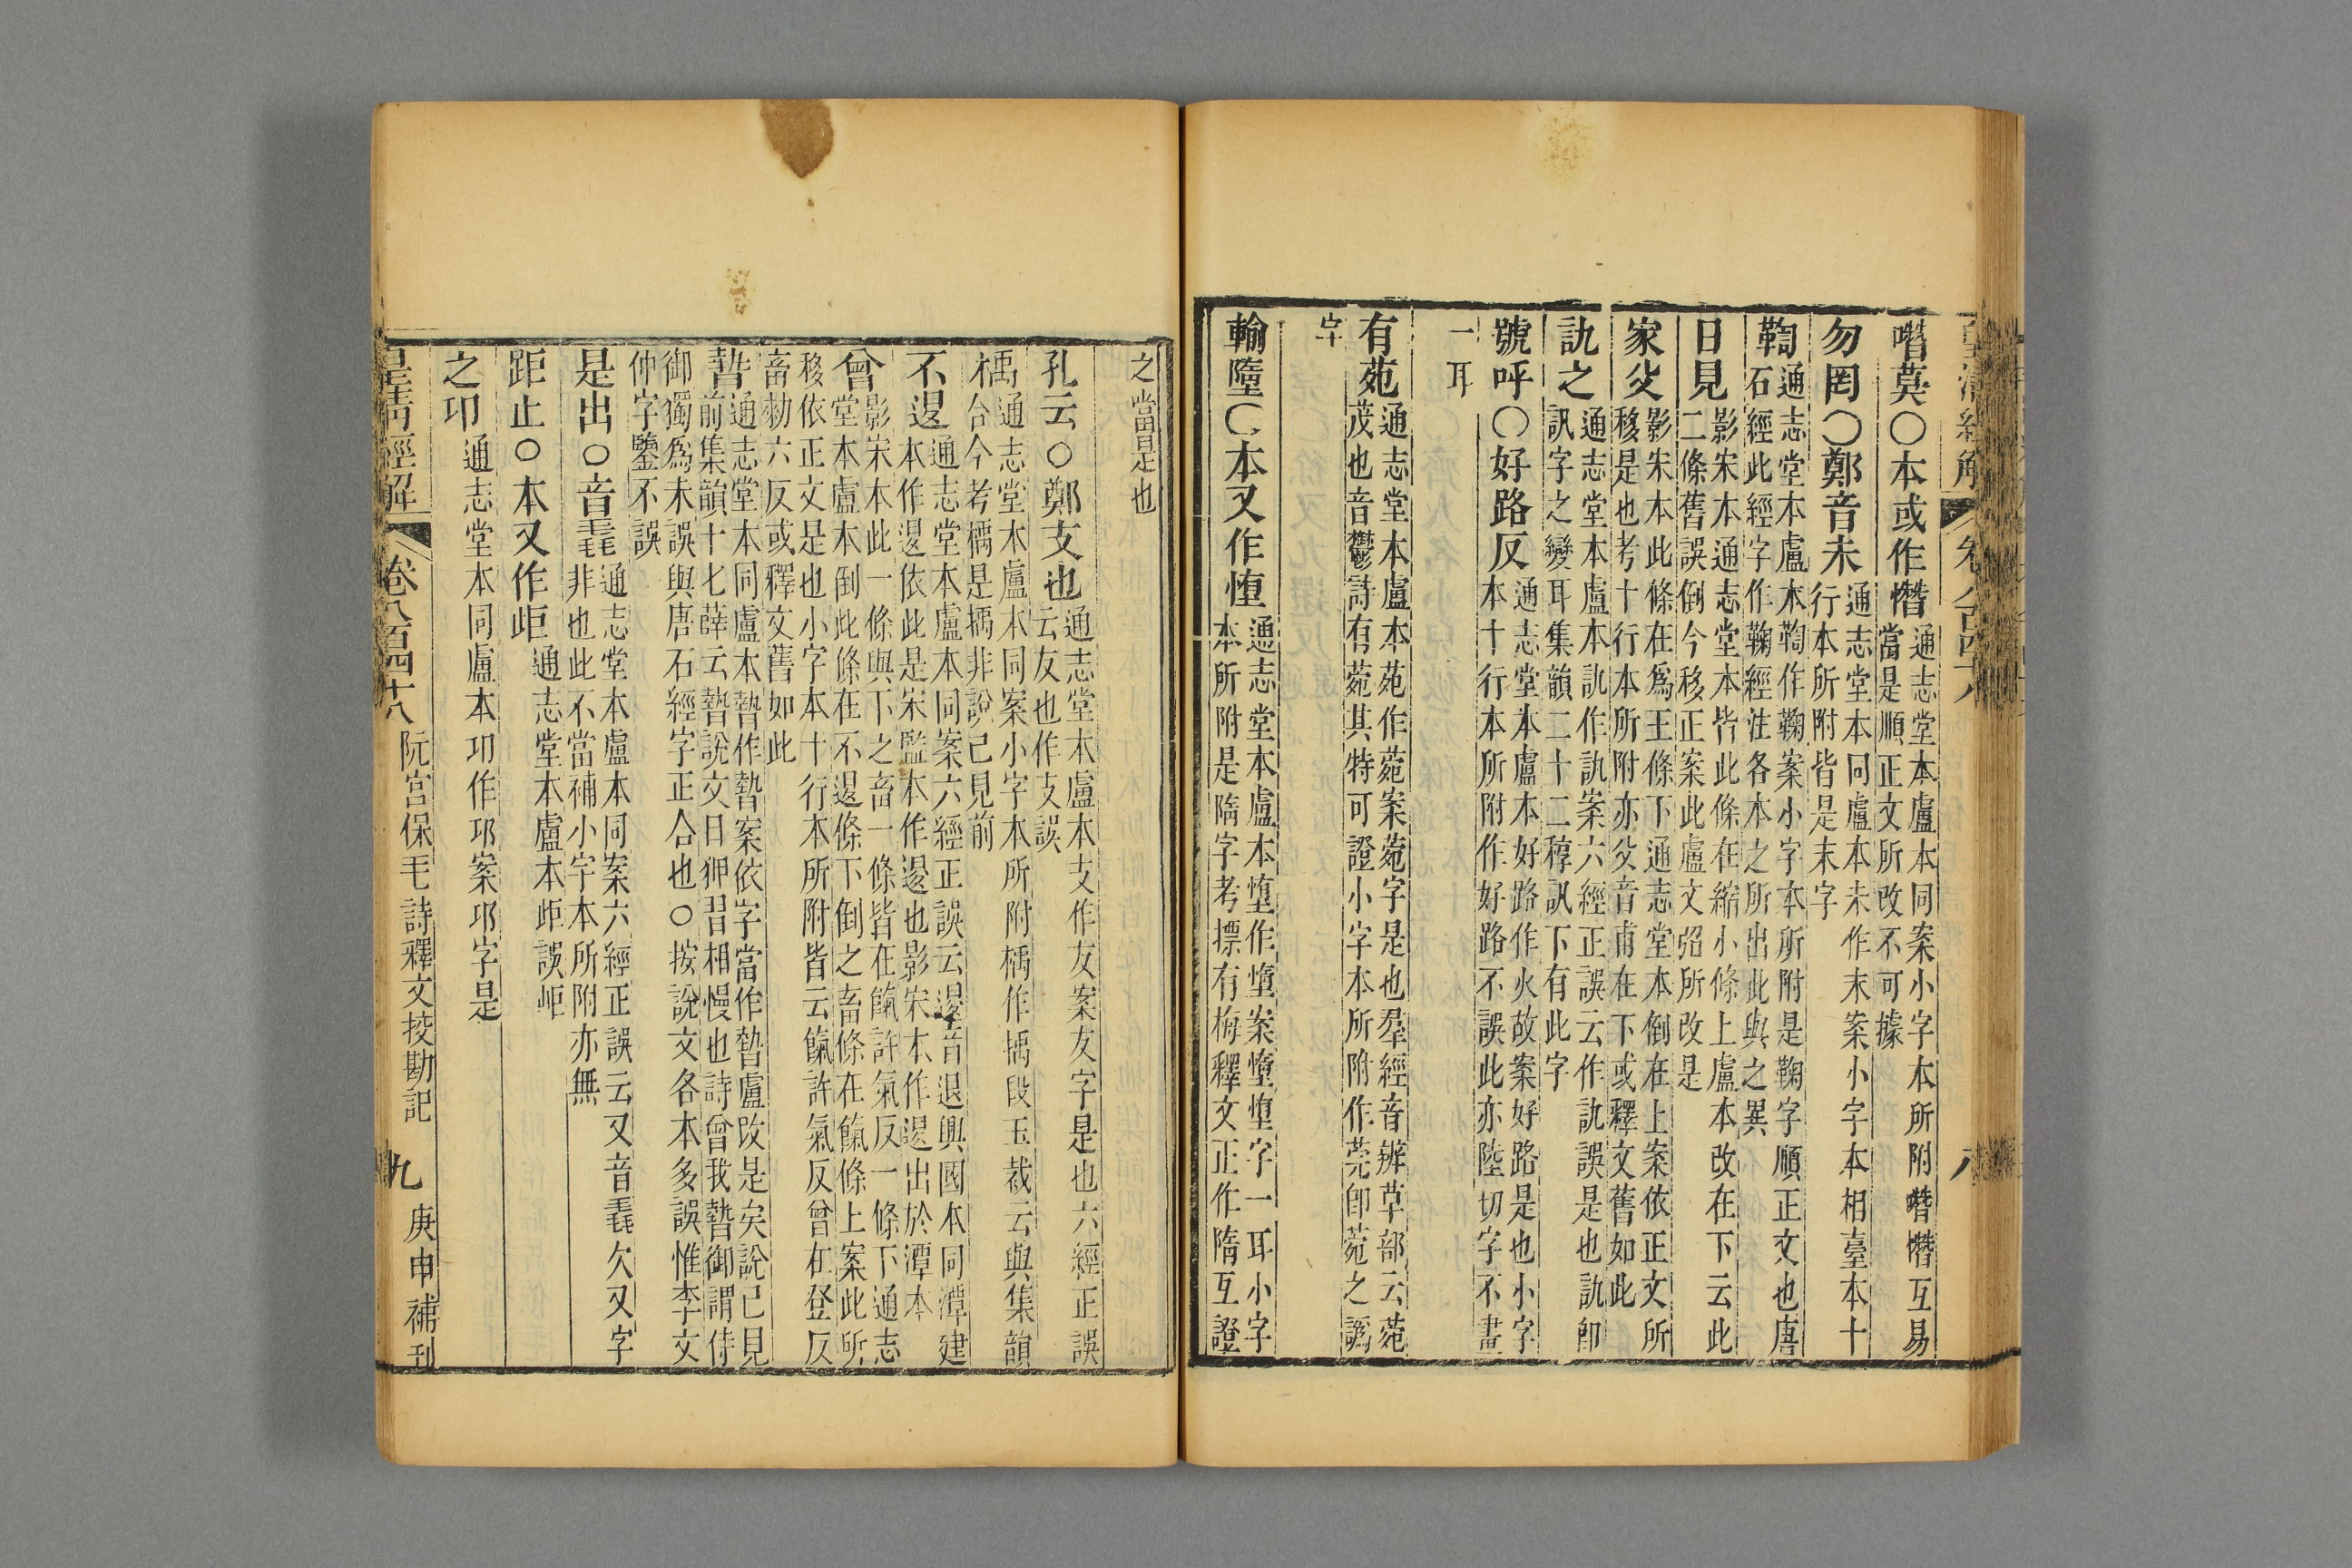 皇清經解 卷八百四十八 八
噆莫〇本或作憯通志堂本盧本同案小字本所附噆憯互易
當是順正文所改不可據
勿罔〇鄭音未通志堂本同盧本未作末案小字本相臺本十
行本所附皆是末字
鞫通志堂本盧本鞫作鞠案小字本所附是鞠字順正文也唐
石經此經字作鞠經注各本之所出此與之異
日見影宋本通志堂本皆此條在縮小條上盧本改在下云此
二條舊誤倒今移正案此盧文弨所改是
家父影宋本此條在爲王條下通志堂本倒在上案依正文所
移是也考十行本所附亦父音甫在下或釋文舊如此
訊之通志堂本盧本訊作訙案六經正誤云作訙誤是也訙卽
訊字之變耳集韻二十二稕訊下有此字
號呼〇好路反通志堂本盧本好路作火故案好路是也小字
本十行本所附作好路不誤此亦陸切字不畫
一耳
有菀通志堂本盧本苑作菀案菀字是也羣經音辨草部云菀
茂也音鬱詩有菀其特可證小字本所附作莞卽菀之譌
字
輸墮〇本又作惰通志堂本盧本墮作墯案墯惰字一耳小字
本所附是隋字考摽有梅釋文正作隋互證
之當是也
孔云〇鄭支也通志堂本盧本支作友案友字是也六經正誤
云友也作支誤
楀通志堂本盧本同案小字本所附楀作㩻段玉裁云與集韻
合今考楀是㩻非說已見前
不遑通志堂本盧本同案六經正誤云遑音退興國本同潭建
本作遑依此是宋監本作遑也影宋本作遑出於潭本
曾影宋本此一條與下之畜一條皆在餼許氣反一條下通志
堂本盧本倒此條在不退條下倒之畜條在餼條上案此所
移依正文是也小字本十行本所附皆云餼許氣反曾在登反
畜勑六反或釋文舊如此
暬通志堂本同盧本暬作暬案依字當作暬盧改是矣說已見
前集韻十七薛云暬說文日狎習相慢也詩曾我暬御謂侍
御獨爲未誤與唐石經字正合也〇按說文各本多誤惟李文
仲字鑒不誤
是出〇音毳通志堂本盧本同案六經正誤云又音毳欠又字
非也此不當補小字本所附亦無
距止〇本又作歫通志堂本盧本歫誤岠
之卭通志堂本同盧本卭作邛案邛字是
皇清經解 卷八百四十八 阮宮保毛詩釋文挍勘記 九 庚申補刊